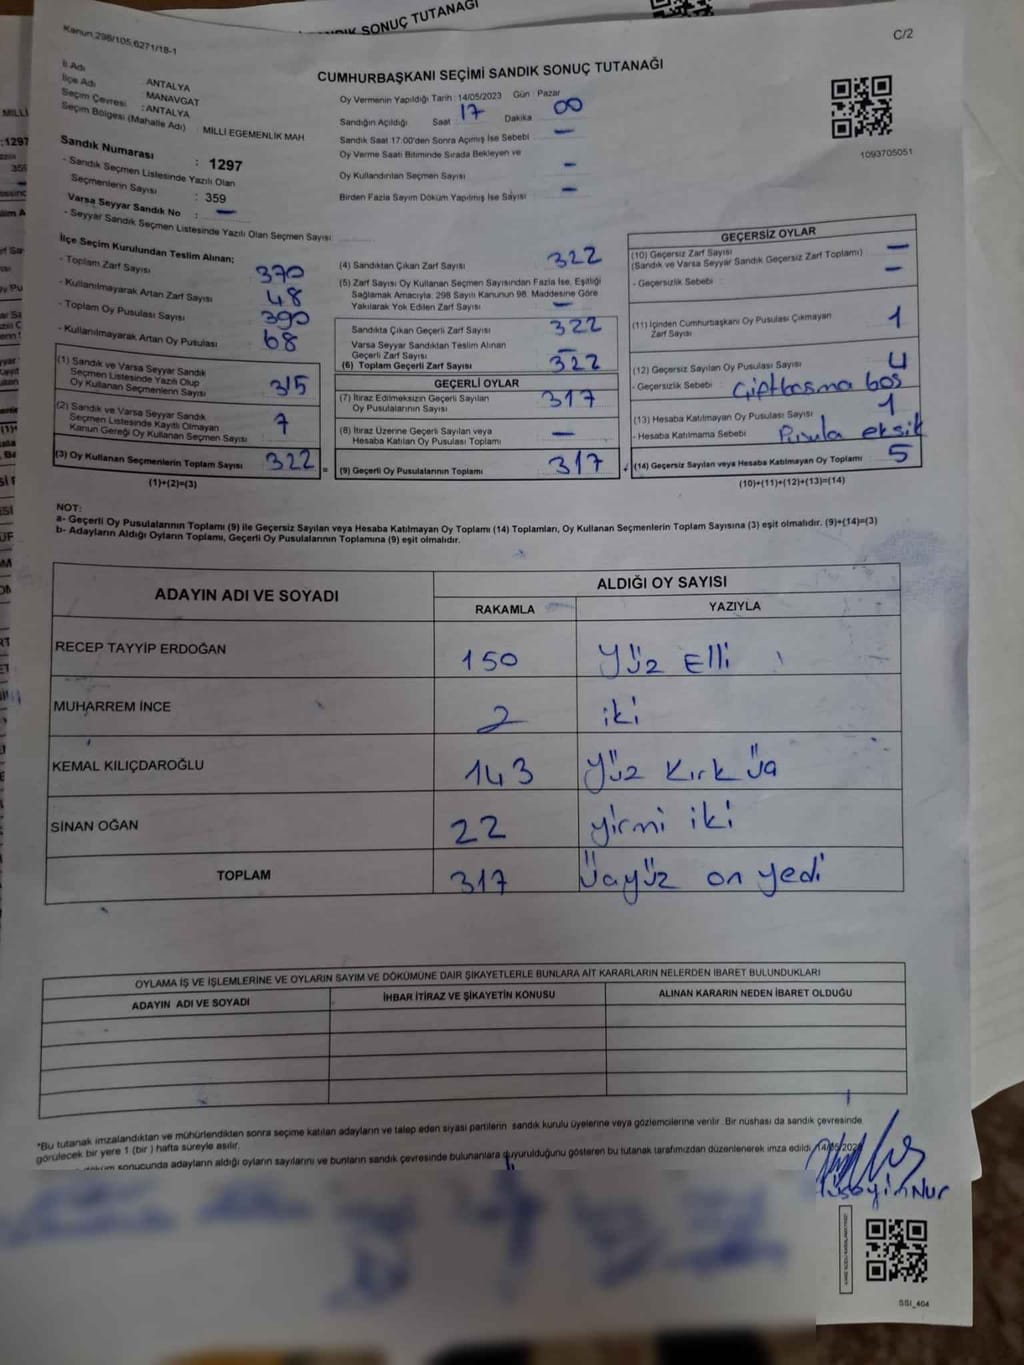 SONUÇ TUTANAĞI
Kanun 298/105,6271/18-1
C/2
CUMHURBAŞKANI SEÇİMİ SANDIK SONUÇ TUTANAĞI
İl Adı : ANTALYA
İlçe Adı : MANAVGAT
Seçim Çevresi : ANTALYA
Seçim Bölgesi (Mahalle Adı) : MİLLİ EGEMENLİK MAH
Sandık Numarası : 1297
- Sandık Seçmen Listesinde Yazılı Olan
Seçmenlerin Sayısı : 359
Varsa Seyyar Sandık No : -
- Seyyar Sandık Seçmen Listesinde Yazılı Olan Seçmen Sayısı
Oy Vermenin Yapıldığı Tarih 14/05/2023 Gün Pazar
Sandığın Açıldığı Saat 17 Dakika 00
Sandık Saat 17:00'den Sonra Açılmış İse Sebebi -
Oy Verme Saati Bitiminde Sırada Bekleyen ve
Oy Kullandırılan Seçmen Sayısı -
Birden Fazla Sayım Döküm Yapılmış İse Sayısı -
1093705051
İlçe Seçim Kurulundan Teslim Alınan;
- Toplam Zarf Sayısı 370
- Kullanılmayarak Artan Zarf Sayısı 48
- Toplam Oy Pusulası Sayısı 390
- Kullanılmayarak Artan Oy Pusulası 68
(1) Sandık ve Varsa Seyyar Sandık
Seçmen Listesinde Yazılı Olup
Oy Kullanan Seçmenlerin Sayısı 315
(2) Sandık ve Varsa Seyyar Sandık
Seçmen Listesinde Kayıtlı Olmayan
Kanun Gereği Oy Kullanan Seçmen Sayısı 7
(3) Oy Kullanan Seçmenlerin Toplam Sayısı 322 =
(1)+(2)=(3)
(4) Sandıktan Çıkan Zarf Sayısı 322
(5) Zarf Sayısı Oy Kullanan Seçmen Sayısından Fazla İse, Eşitliği
Sağlamak Amacıyla, 298 Sayılı Kanunun 98. Maddesine Göre
Yakılarak Yok Edilen Zarf Sayısı -
Sandıkta Çıkan Geçerli Zarf Sayısı 322
Varsa Seyyar Sandıktan Teslim Alınan
Geçerli Zarf Sayısı -
(6) Toplam Geçerli Zarf Sayısı 322
GEÇERLİ OYLAR
(7) İtiraz Edilmeksizin Geçerli Sayılan
Oy Pusulalarının Sayısı 317
(8) İtiraz Üzerine Geçerli Sayılan veya
Hesaba Katılan Oy Pusulası Toplamı -
(9) Geçerli Oy Pusulalarının Toplamı 317
GEÇERSİZ OYLAR
(10) Geçersiz Zarf Sayısı -
(Sandık ve Varsa Seyyar Sandık Geçersiz Zarf Toplamı)
- Geçersizlik Sebebi -
(11) İçinden Cumhurbaşkanı Oy Pusulası Çıkmayan
Zarf Sayısı 1
(12) Geçersiz Sayılan Oy Pusulası Sayısı 4
- Geçersizlik Sebebi Çiftbasma boş
(13) Hesaba Katılmayan Oy Pusulası Sayısı 1
- Hesaba Katılmama Sebebi Pusula eksik
(14) Geçersiz Sayılan veya Hesaba Katılmayan Oy Toplamı 5
(10)+(11)+(12)+(13)=(14)
NOT:
a- Geçerli Oy Pusulalarının Toplamı (9) ile Geçersiz Sayılan veya Hesaba Katılmayan Oy Toplamı (14) Toplamları, Oy Kullanan Seçmenlerin Toplam Sayısına (3) eşit olmalıdır. (9)+(14)=(3)
b- Adayların Aldığı Oyların Toplamı, Geçerli Oy Pusulalarının Toplamına (9) eşit olmalıdır.
ADAYIN ADI VE SOYADI ALDIĞI OY SAYISI
RAKAMLA YAZIYLA
RECEP TAYYİP ERDOĞAN 150 Yüz Elli
MUHARREM İNCE 2 iki
KEMAL KILIÇDAROĞLU 143 Yüz Kırk Üç
SİNAN OĞAN 22 yirmi iki
TOPLAM 317 Üçyüz on yedi
OYLAMA İŞ VE İŞLEMLERİNE VE OYLARIN SAYIM VE DÖKÜMÜNE DAİR ŞİKAYETLERLE BUNLARA AİT KARARLARIN NELERDEN İBARET BULUNDUKLARI
ADAYIN ADI VE SOYADI İHBAR İTİRAZ VE ŞİKAYETİN KONUSU ALINAN KARARIN NEDEN İBARET OLDUĞU
*Bu tutanak imzalandıktan ve mühürlendikten sonra seçime katılan adayların ve talep eden siyasi partilerin sandık kurulu üyelerine veya gözlemcilerine verilir. Bir nüshası da sandık çevresinde
görülecek bir yere 1 (bir ) hafta süreyle asılır.
döküm sonucunda adayların aldığı oyların sayılarını ve bunların sandık çevresinde bulunanlara duyurulduğunu gösteren bu tutanak tarafımızdan düzenlenerek imza edildi. 14/05/2023
Hüseyin Nur
SSI_404